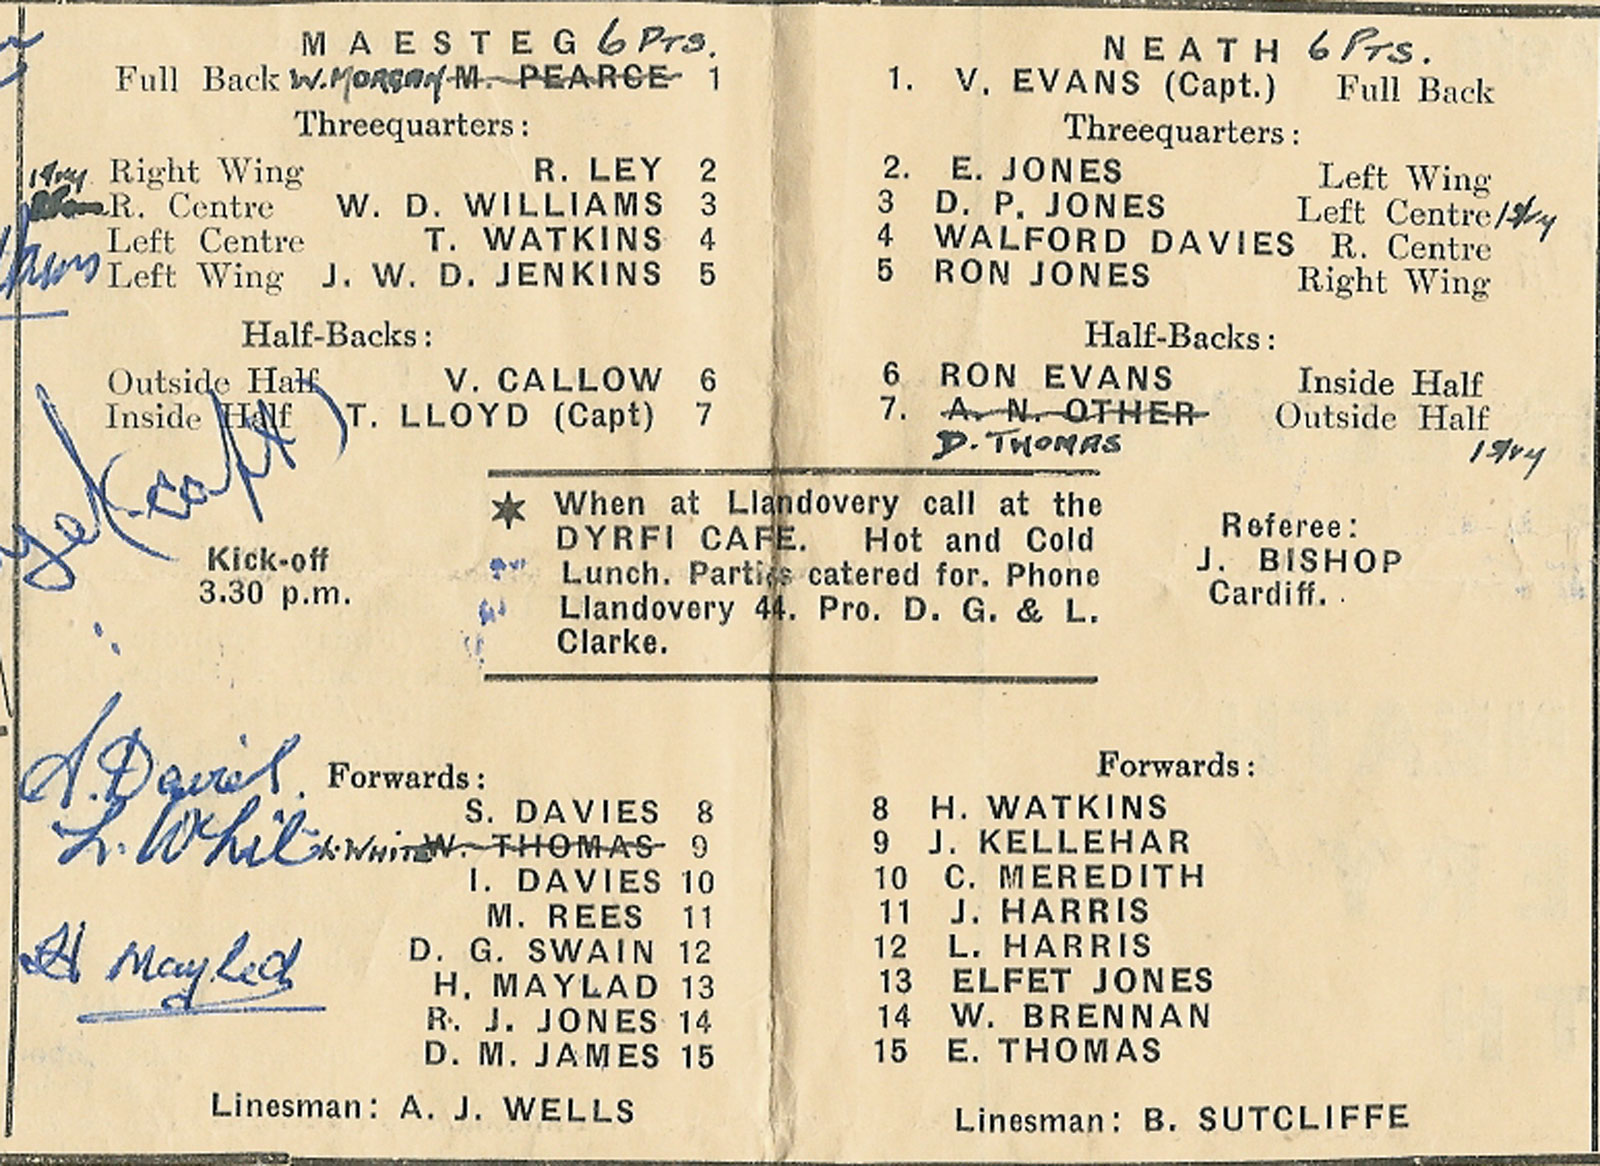 MAESTEG 6 PTS.
Full Back W. MORGAN M. PEARCE 1
Threequarters:
1 try Right Wing R. LEY 2
R. Centre W. D. WILLIAMS 3
Left Centre T. WATKINS 4
Left Wing J. W. D. JENKINS 5
Half-Backs:
Outside Half V. CALLOW 6
Inside Half T. LLOYD (Capt) 7
(capt)
Kick-off
3.30 p.m.
NEATH 6 PTS.
1. V. EVANS (Capt.) Full Back
Threequarters:
2. E. JONES Left Wing
3 D. P. JONES Left Centre 1 try
4 WALFORD DAVIES R. Centre
5 RON JONES Right Wing
Half-Backs:
6 RON EVANS Inside Half
7. A. N. OTHER Outside Half
D. THOMAS 1 try
★ When at Llandovery call at the
DYRFI CAFE. Hot and Cold
Lunch. Parties catered for. Phone
Llandovery 44. Pro. D. G. & L.
Clarke.
Referee:
J. BISHOP
Cardiff.
S. Davies. Forwards:
S. DAVIES 8
L. White L. WHITE W. THOMAS 9
I. DAVIES 10
M. REES 11
D. G. SWAIN 12
H Mayled H. MAYLAD 13
R. J. JONES 14
D. M. JAMES 15
Linesman: A. J. WELLS
Forwards:
8 H. WATKINS
9 J. KELLEHAR
10 C. MEREDITH
11 J. HARRIS
12 L. HARRIS
13 ELFET JONES
14 W. BRENNAN
15 E. THOMAS
Linesman: B. SUTCLIFFE